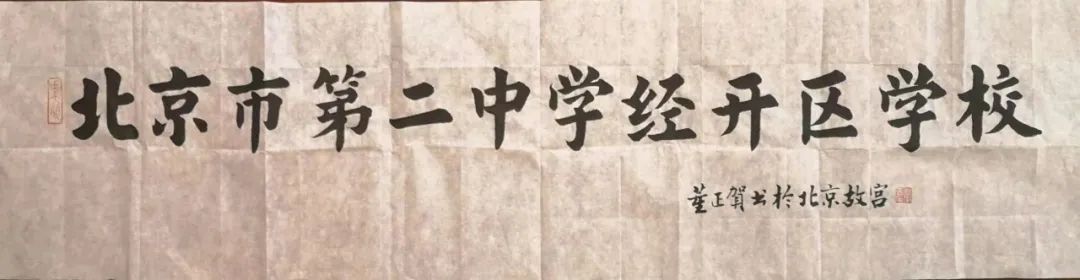 北京市第二中学经开区学校
董正贺书于北京故宫